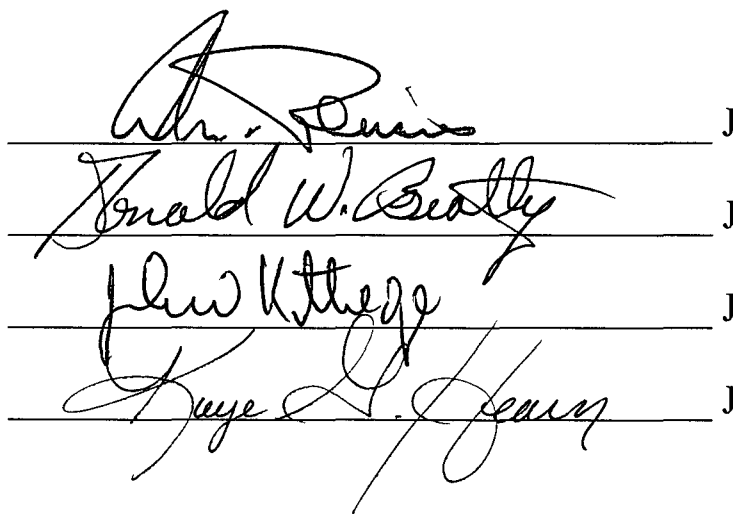 J
Donald W. Beatty J
John Kittredge J
Kaye G. Hearn J